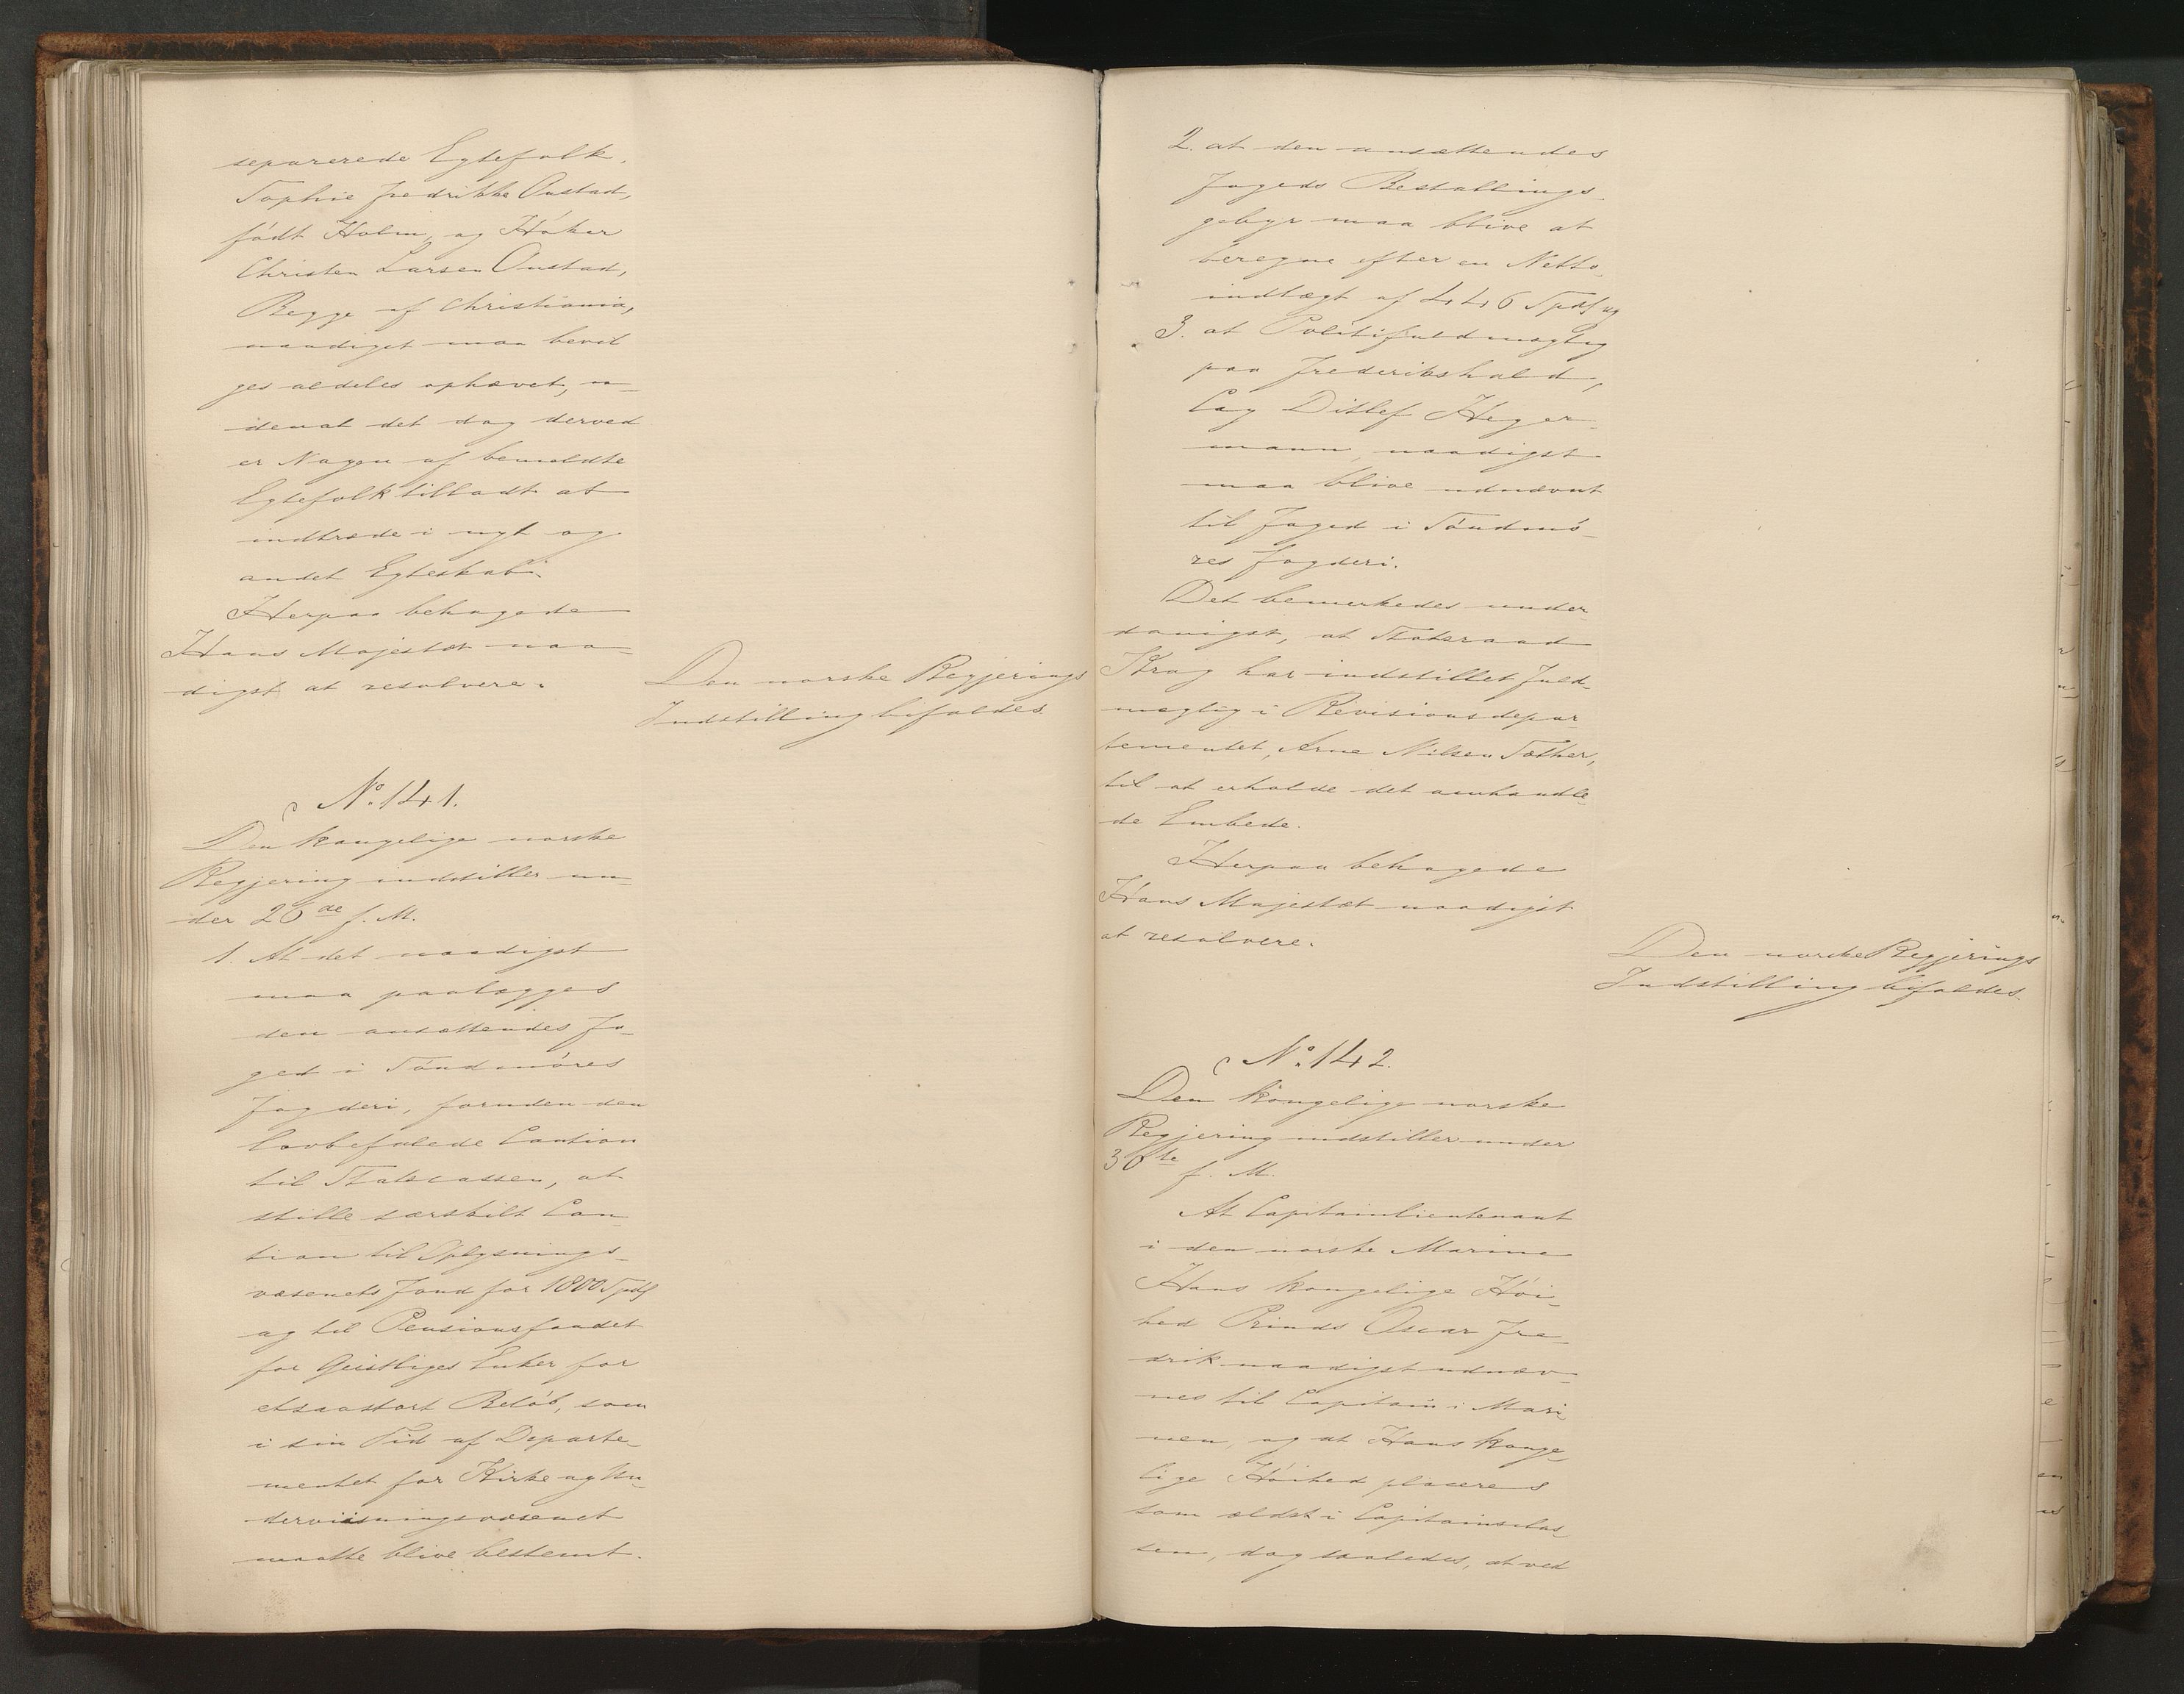 separerede Egtefolk,
Sophie Fredrikke Onstad,
født Holm, og Høker
Christen Larsen Onstad,
Begge af Christiania,
naadigst maa bevil
ges aldeles ophævet, u-
denat det dog derved
er Nogen af bemeldte
Egtefolk tilladt at
indtræde i nyt og
andet Egteskab.
Herpaa behagede
Hans Majestæt naa-
digst at resolvere.
Den norske Regjerings
Indstilling bifaldes.
No. 141.
Den kongelige norske
Regjering indstiller un-
der 26de f. M.
1. At det naadigst
maa paalægges
den ansættendes Fo-
ged i Søndmøres
Fogderi, foruden den
lovbefalede Caution
til Statscassen, at
stille særskilt Cau-
tion til Oplysnings-
væsenets Fond for 1800 Spdlr
og til Pensionsfondet
for Geistliges Enker for
etsaastort Beløb, som
i sin Tid af Departe-
mentet for Kirke og Un-
derviisningsvæsenet
maatte blive bestemt.
2. at den ansættendes
Fogeds Bestallings-
gebyr maa blive at
beregne efter en Netto-
indtægt af 446 Spdlr og
3. at Politifuldmægtig
paa Frederikshald,
Cay Ditlef Heger-
mann, naadigst
maa blive udnævnt
til Foged i Søndmø-
res Fogderi.
Det bemerkedes under-
danigst, at Statsraad
Krog har indstillet Fuld-
mægtig i Revisionsdepar
tementet, Arne Nilsen Sæther,
til at erholde det omhandle-
de Embede.
Herpaa behagede
Hans Majestæt naadigst
at resolvere.
Den norske Regjerings
Indstilling bifaldes.
No. 142.
Den kongelige norske
Regjering indstiller under
30te f. M.
At Capitainlieutenant
i den norske Marine
Hans kongelige Høi-
hed Prinds Oscar Fre-
drik naadigst udnæv-
nes til Capitain i Mari-
nen, og at Hans konge-
lige Høihed placeres
som ældst i Capitainsclas-
sen, dog saaledes, at ved